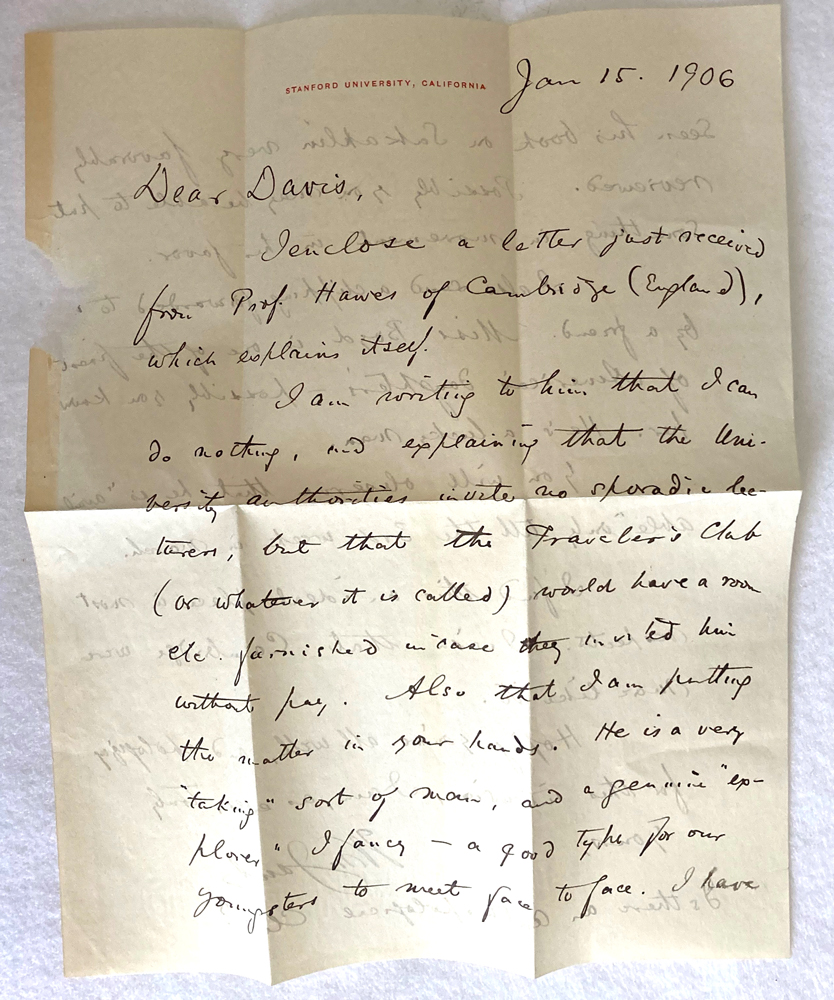 STANFORD UNIVERSITY, CALIFORNIA
Jan 15. 1906
Dear Davis,
I enclose a letter just received
from Prof. Hawes of Cambridge (England),
which explains itself.
I am writing to him that I can
do nothing, and explaining that the Uni-
versity authorities invite no sporadic lec-
turers, but that the Traveler's Club
(or whatever it is called) would have a room
etc. furnished in case they invited him
without pay. Also that I am putting
the matter in your hands. He is a very
"taking" sort of man, and a genuine "ex-
plorer" I fancy — a good type for our
youngsters to meet face to face. I have